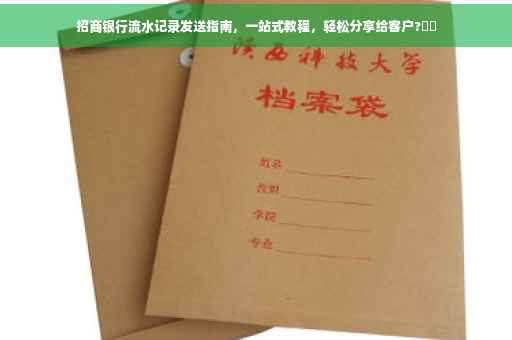 招商银行流水记录发送指南，一站式教程，轻松分享给客户?
陕西科技大学
档案袋
姓名
学院
专业